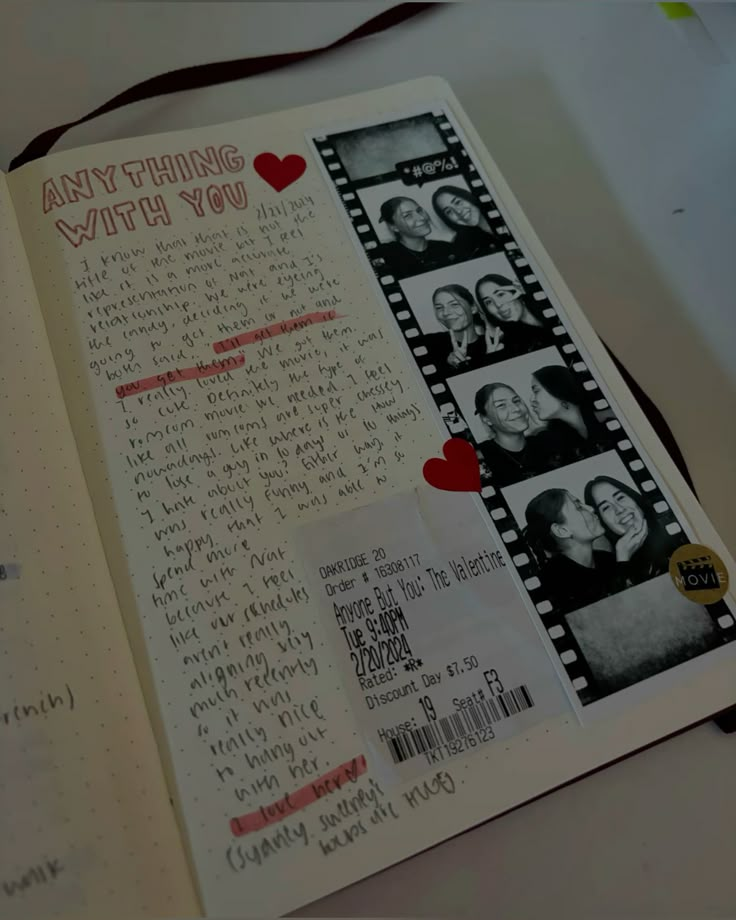 ANYTHING
WITH YOU
2/21/2024
I know that that is not the
title of the movie but I feel
like it is a more accurate
representation of Nat and I's
relationship. We were eyeing
the candy, deciding if we were
going to get them or not and
both said, "I'll get them if
you get them" We got them.
I really loved the movie, it was
so cute. Definitely the type of
romcom movie we needed. I feel
like all romcoms are super cheesey
nowadays. Like where is the How
to lose a guy in 10 days or 10 things
I hate about you? Either way, it
was really funny and I'm so
happy that I was able to
spend more
time with Nat
because I feel
like our schedules
aren't really
aligning very
much recently
so it was
really nice
to hang out
with her.
I love her
(Sydney Sweeney's
are HUGE)
*#@%!
MOVIE
OAKRIDGE 20
Order # 16308117
Anyone But You: The Valentine
Tue 9:40PM
2/20/2024
Rated: *R*
Discount Day $7.50
House: 19 Seat# F3
TKT19276123